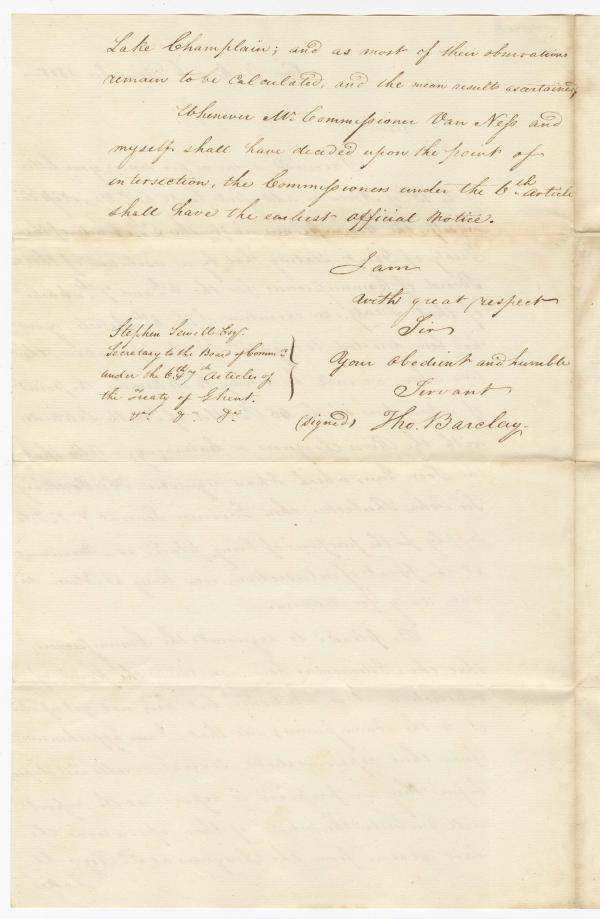 Lake Champlain; and as most of their observations
remain to be calculated, and the mean results ascertained,
Whenever Mr. Commissioner Van Ness and
myself shall have decided upon the point of
intersection, the Commissioners under the 6th Article
shall have the earliest official Notice.
I am
with great respect
Sir
Your obedient and humble
Servant
(signed) Tho. Barclay.
Stephen Sewell Esqr.
Secretary to the Board of Commrs.
under the 6th & 7th Articles of
the Treaty of Ghent.
&c. &c. &c.